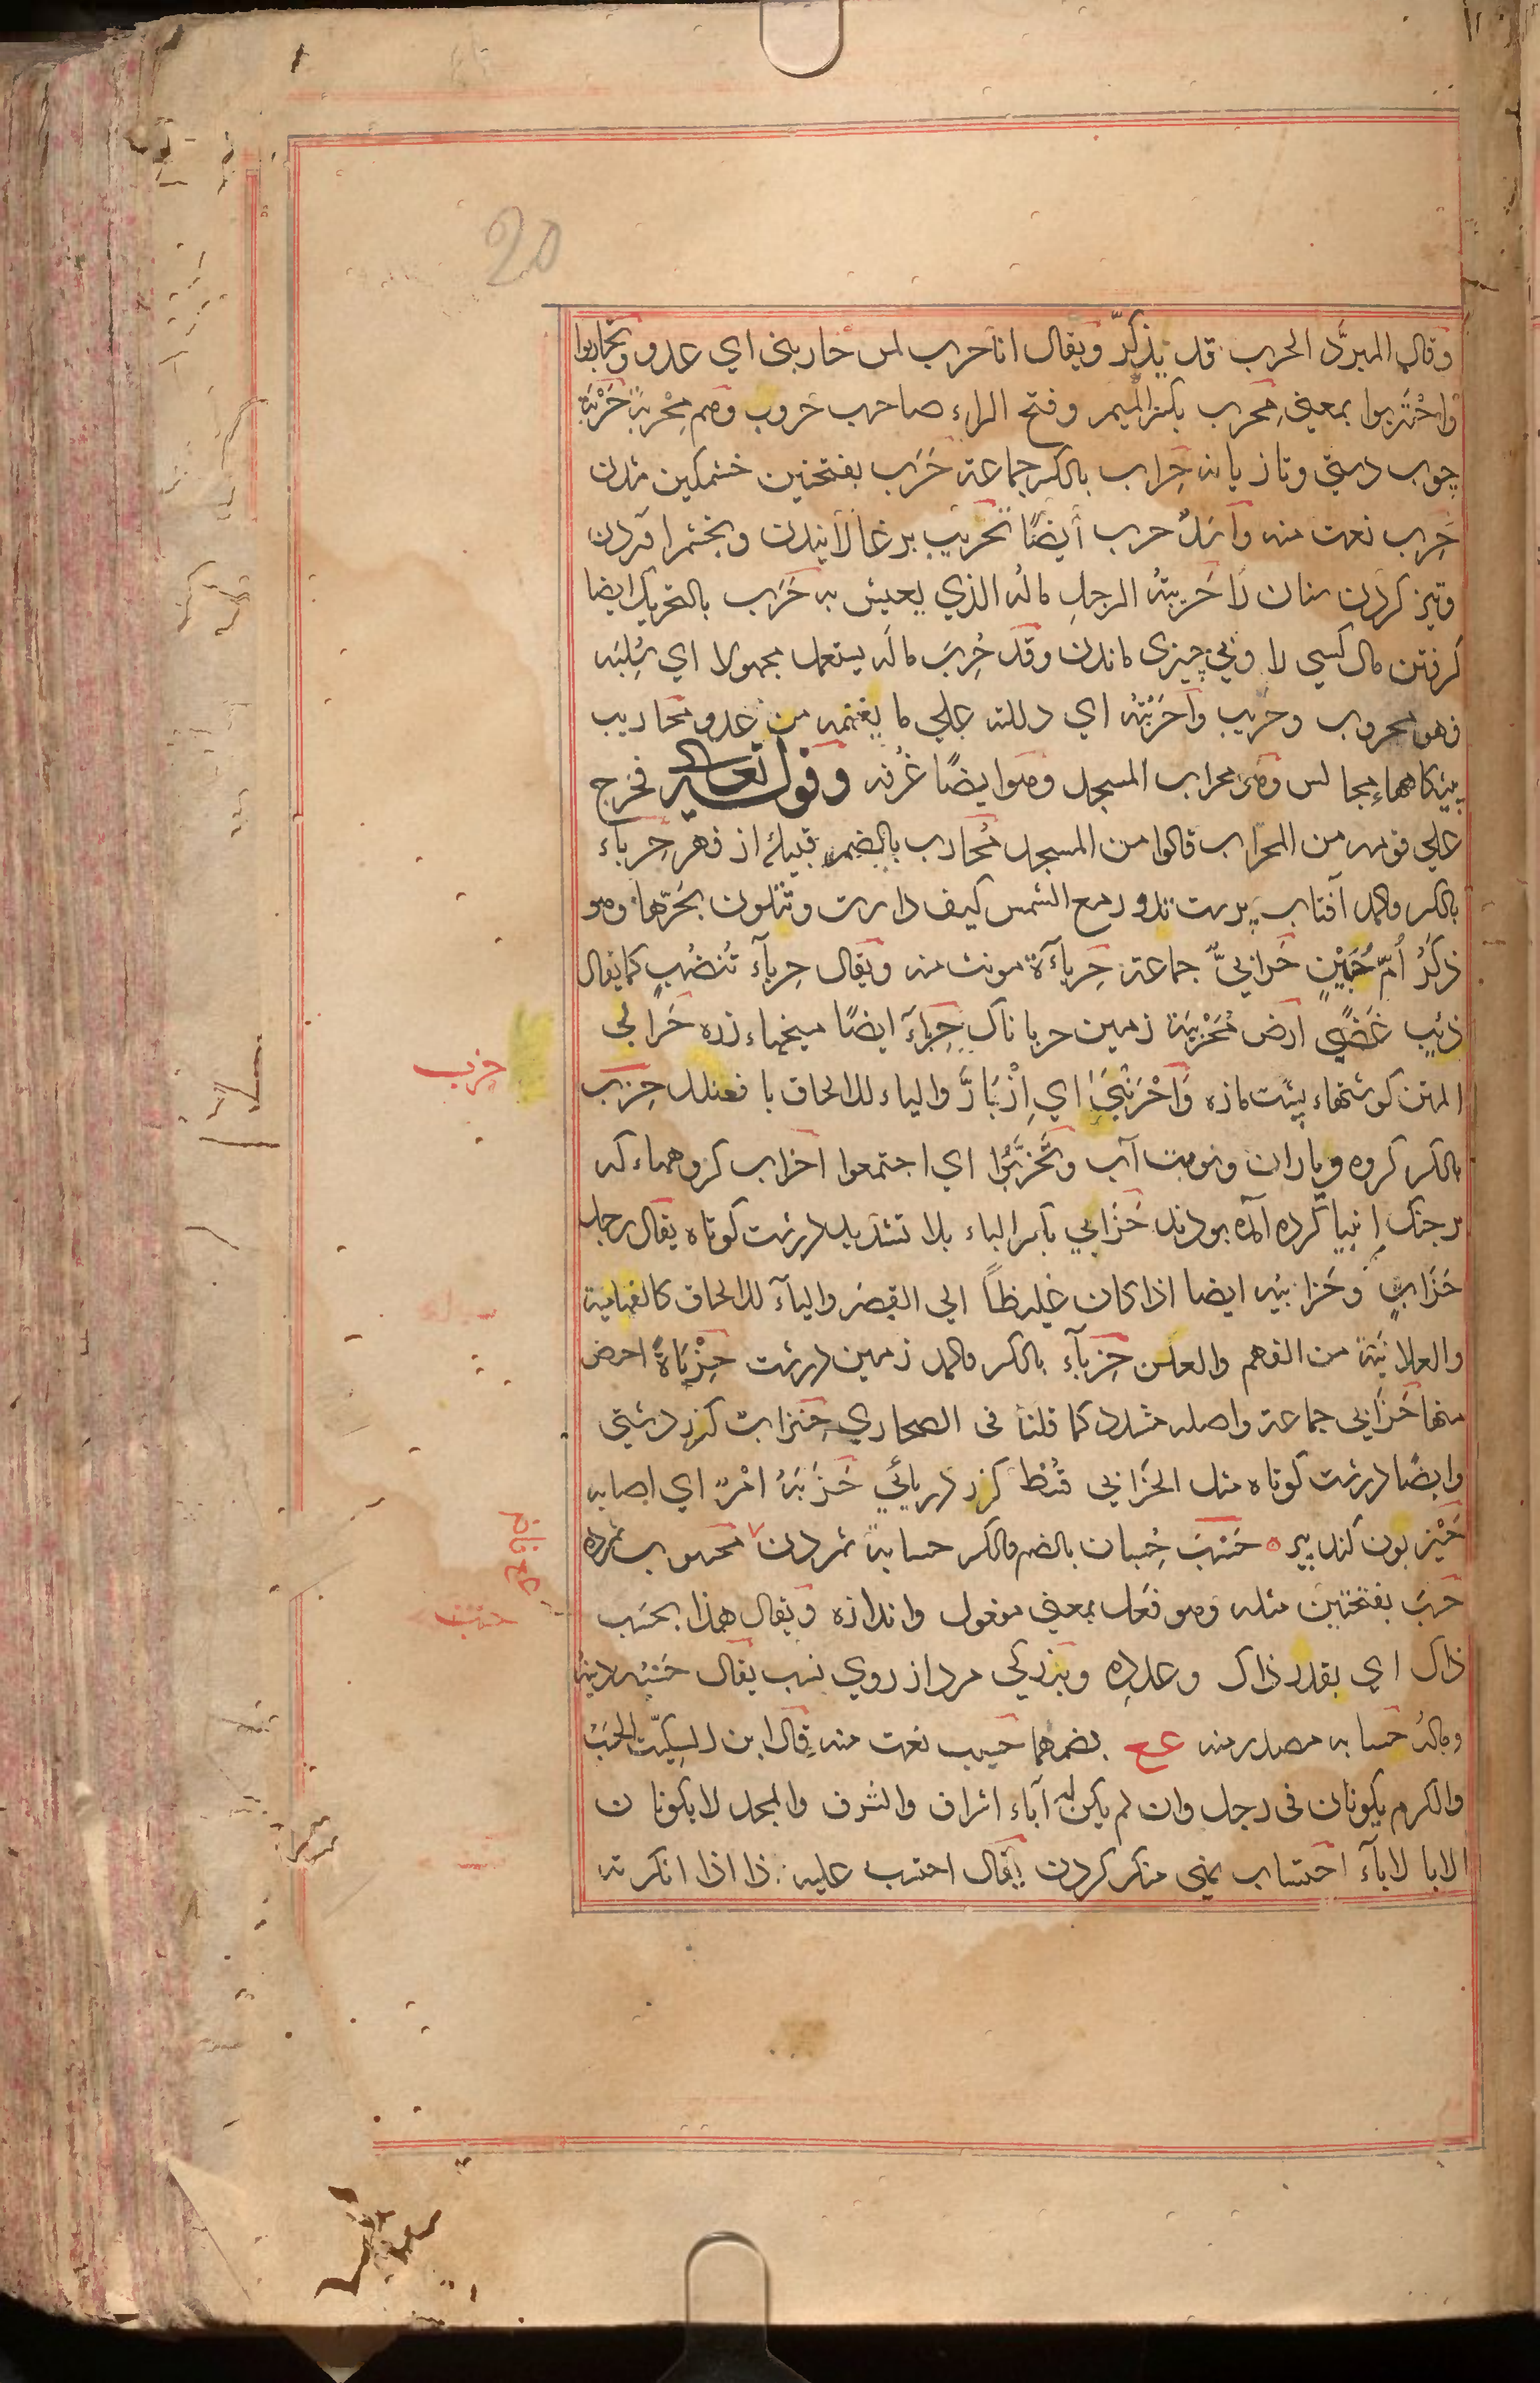 20
وقال المبرَّد الحرب قد يذكّر ويقال انا حرب لمن حاربنى اي عدو وتحاربوا
واحْتَربوا بمعنى مِحرب بكسر الميم وفتح الراء صاحب حروب وهم مِحْربة حَرْبَة
چوب دستى وتازيانه حِراب بالكسر جماعة حَرَب بفتحتين خشمكين شدن
حَرِب نعت منه واَسَدٌ حرب أيضًا تحريب برغالانيدن وبخشم آوردن
وتيز كردن سنان را حَريبَةُ الرجلِ مالُه الذي يعيش به حَرَب بالتحريك ايضا
كرفتن مال كسي را وبي چيزى ماندن وقد حُرِبَ مالَه يستعمل مجهولا اي سُلِبَه
فهو محروب وحَريب واَحرَبْتُه اي دللته علي ما يغنمه من عدو محاريب
پيشكاهها مجالس ومنه محراب المسجد وهو ايضًا غُرفه وقوله تعالى فخرج
علي قومه من المحراب قالوا من المسجد مُحارب بالضم قبيله از فهر حِرباء
بالكسر والمد آفتاب پرست تدور مع الشمس كيف دارت وتتلون بحَرّها وهو
ذَكَرُ اُمّ حُبَيْنٍ حَرابيُّ جماعة حِرباءَة مونث منه ويقال حِرباءُ تُنضُبٍ كما يقال
ذئب غضًى ارض مُحَرْبِئَة زمين حربا ناك حِرباء ايضًا ميخهاء زره حَرابي
المتن كوشتهاء پشت مازه وَاحْرَنْبَي اي اِزْبَأرَّ والياء للالحاق بافعنلل حِزب
بالكسر كروه وياران ونوبت آب وتَحَزَّبُوا اي اجتمعوا احزاب كروههاء كه
بر جنك انبيا كرده آمده بودند حَزَابي بكسر الباء بلا تشديد درشت كوتاه يقال رجل
حَزَابٍ وحَزابيَه ايضا اذا كان غليظًا الي القِصَر والياء للالحاق كالفهامية
والعلانيَة من الفهم والعلن حِزباء بالكسر والمد زمين درشت حِزْباة اخص
منها حَزَابي جماعة واصله مشدد كما قلنا فى الصحاري حِنزاب كزر دشتي
وايضًا درشت كوتاه مثل الحَزابي قُسْط كزر دريائي حَزَبَهُ امْرٌ اي اصابه
حَيْزبون كنده پير ه حَسْب حُسبان بالضم والكسر حسابة شمردن محسوب شمرده
حَسَب بفتحتين مثله وهو فَعَل بمعنى مفعول واندازه ويقال هذا بحَسَب
ذاك اي بقدر ذاك وعدده وبزركي مرد از روي نسب يقال حَسَبُه دينُه
ومالُه حسابه مصدر منه عح بضمهما حسيب نعت منه قال ابن السِكيّت الحَسَبُ
والكرم يكونان فى رجل وان لم يكن له آباء اشراف والشرف والمجد لا يكونان
الا بالاباء احتساب نهى منكر كردن يقال احتسب عليه كذا اذا انكرته
حزب
حسب